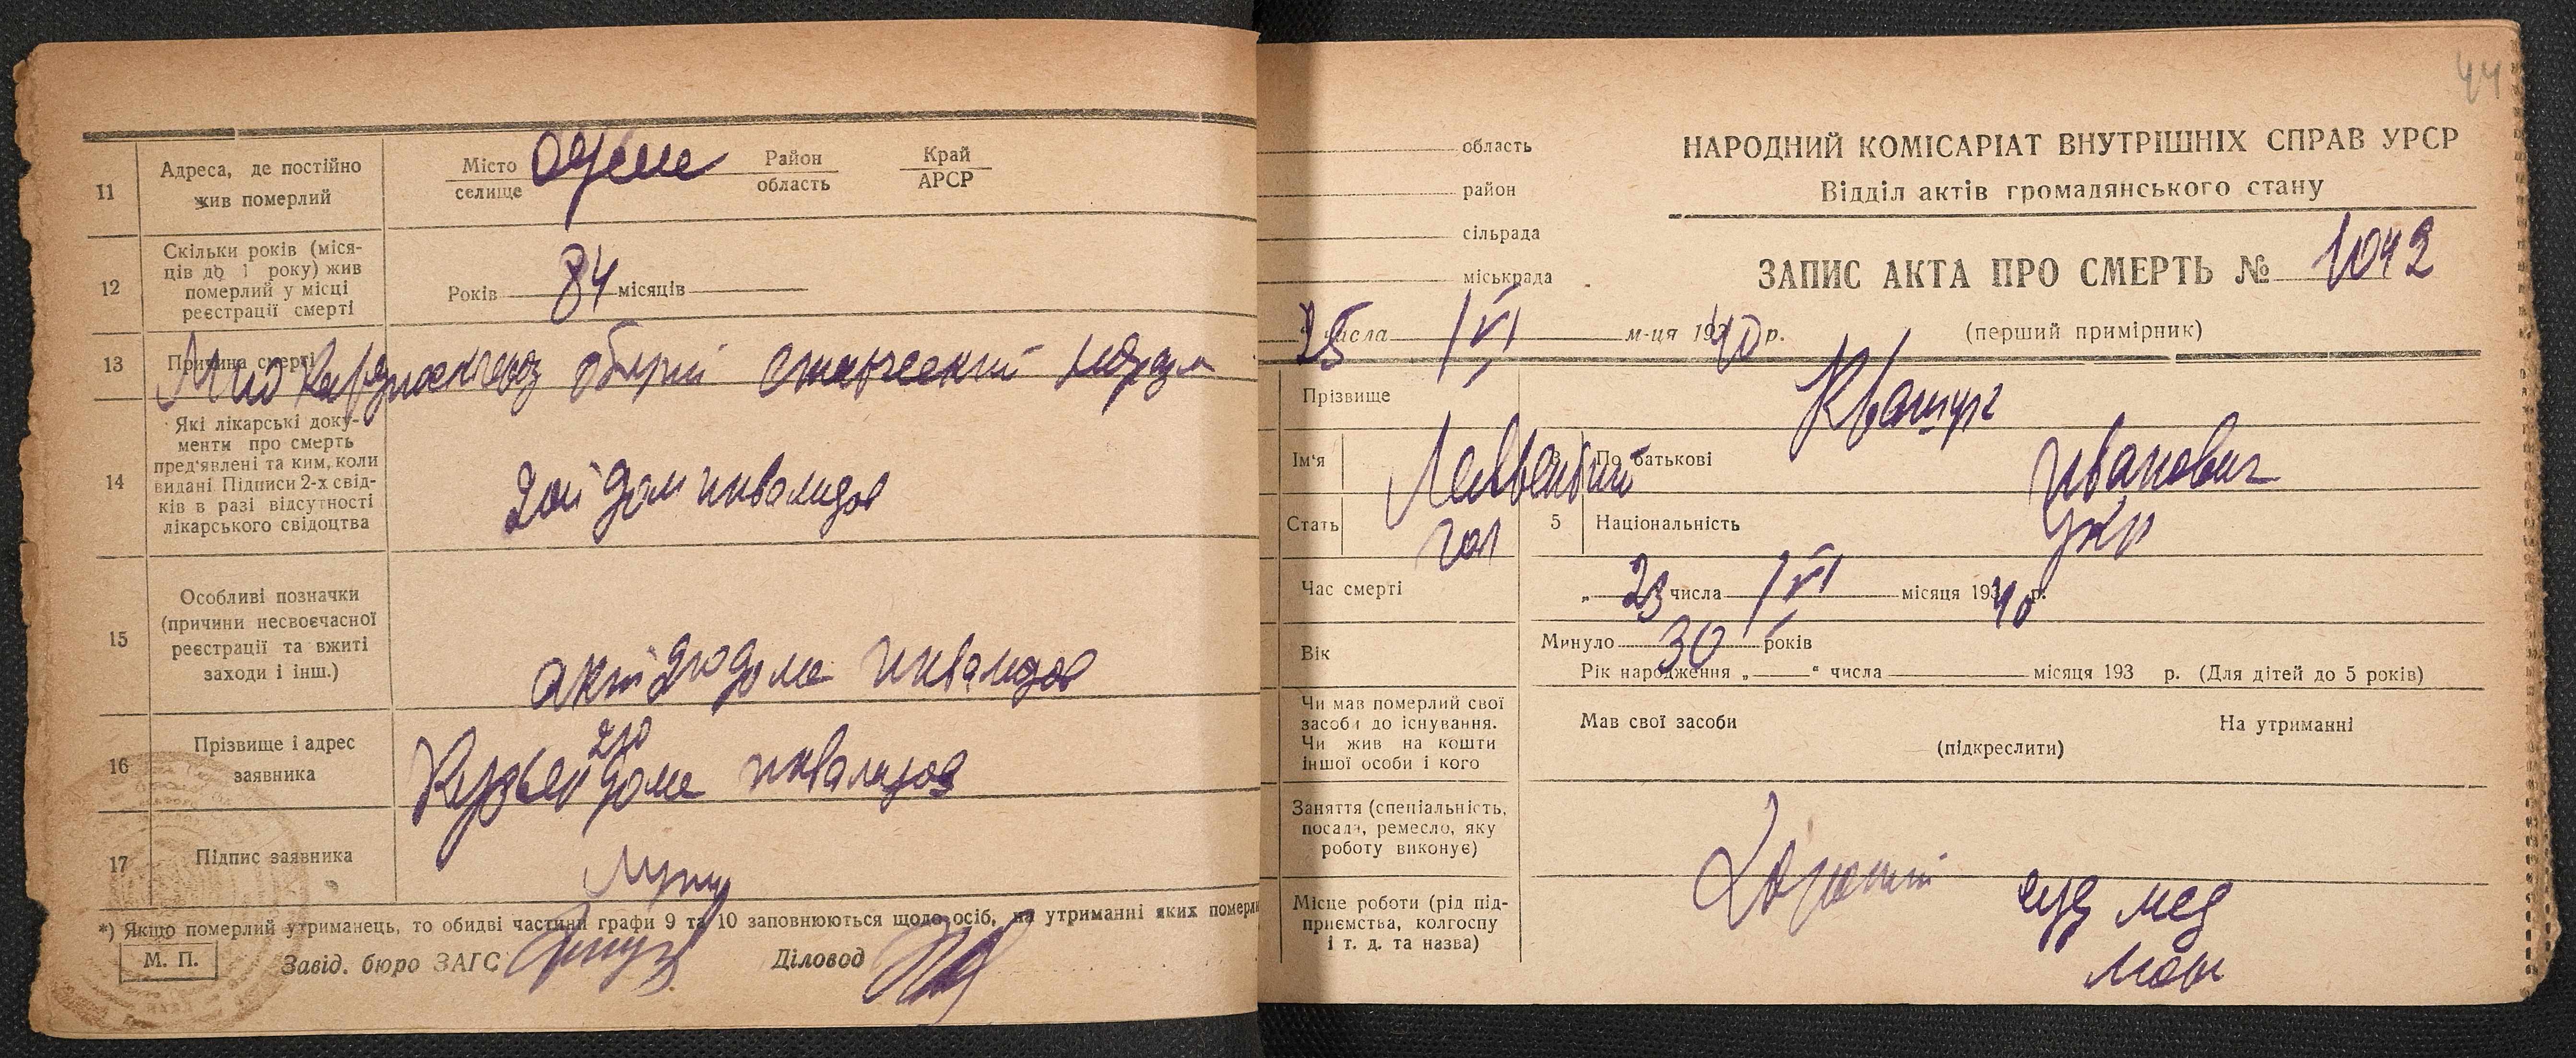 11
Адреса, де постійно
жив померлий
Місто
селище
Одесе
Район
область
Край
АРСР
12
Скільки років (міся-
ців до 1 року) жив
померлий у місці
реєстрації смерті
Років 84 місяців
13
Причина смерті
общий
14
Які лікарські доку-
менти про смерть
пред'явлені та ким, коли
видані. Підписи 2-х свід-
ків в разі відсутності
лікарського свідоцтва
2ой дом инвалидов
15
Особливі позначки
(причини несвоєчасної
реєстрації та вжиті
заходи і інш.)
акт 2го дома инвалидов
16
Прізвище і адрес
заявника
2го
дома инвалидов
17
Підпис заявника
*) Якщо померлий утриманець, то обидві частини графи 9 та 10 заповнюються щодо осіб, на утриманні яких померли
М. П.
Завід. бюро ЗАГС
Діловод
44
область
район
сільрада
міськрада
НАРОДНИЙ КОМІСАРІАТ ВНУТРІШНІХ СПРАВ УРСР
Відділ актів громадянського стану
ЗАПИС АКТА ПРО СМЕРТЬ № 1042
25 числа VI м-ця 1940 р.
(перший примірник)
Прізвище
Ім'я
По батькові
Иванович
Стать
чол
5
Національність
укр
Час смерті
„ 23 числа VI місяця 1940 р.
Вік
Минуло 30 років
Рік народження „ “ числа місяця 193 р. (Для дітей до 5 років)
Чи мав померлий свої
засоби до існування.
Чи жив на кошти
іншої особи і кого
Мав свої засоби
На утриманні
(підкреслити)
Заняття (спеціальність,
посада, ремесло, яку
роботу виконує)
Місце роботи (рід під-
приємства, колгоспу
і т. д. та назва)
мед